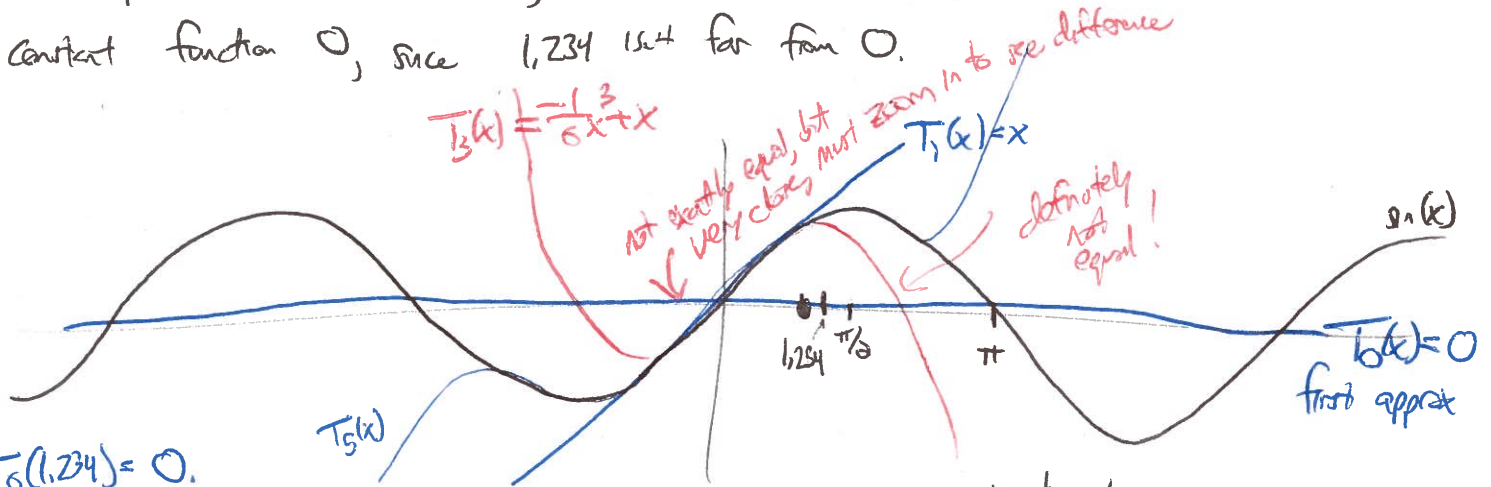 constant function 0, since 1,234 isn't far from 0.
T₃(x) = -1/6 x³ + x
not exactly equal, but
very close, must zoom in to see difference
T₁(x) = x
definitely
not
equal!
sin(x)
1,234
π/2
π
T₀(x) = 0
first approx
T₅(x)
T₀(1,234) = 0.